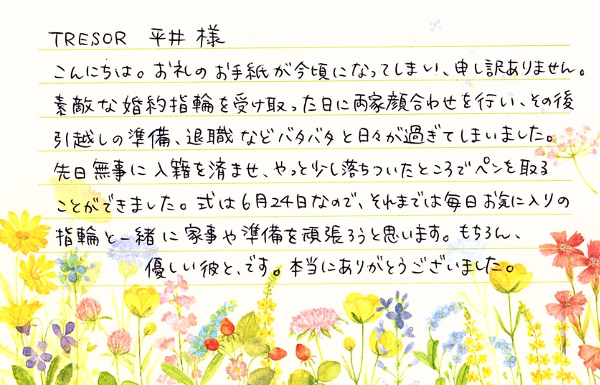 TRESOR 平井 様
こんにちは。お礼のお手紙が今頃になってしまい、申し訳ありません。
素敵な婚約指輪を受け取った日に両家顔合わせを行い、その後
引越しの準備、退職などバタバタと日々が過ぎてしまいました。
先日無事に入籍を済ませ、やっと少し落ちついたところでペンを取る
ことができました。式は6月24日なので、それまでは毎日お気に入りの
指輪と一緒に家事や準備を頑張ろうと思います。もちろん、
優しい彼と、です。本当にありがとうございました。